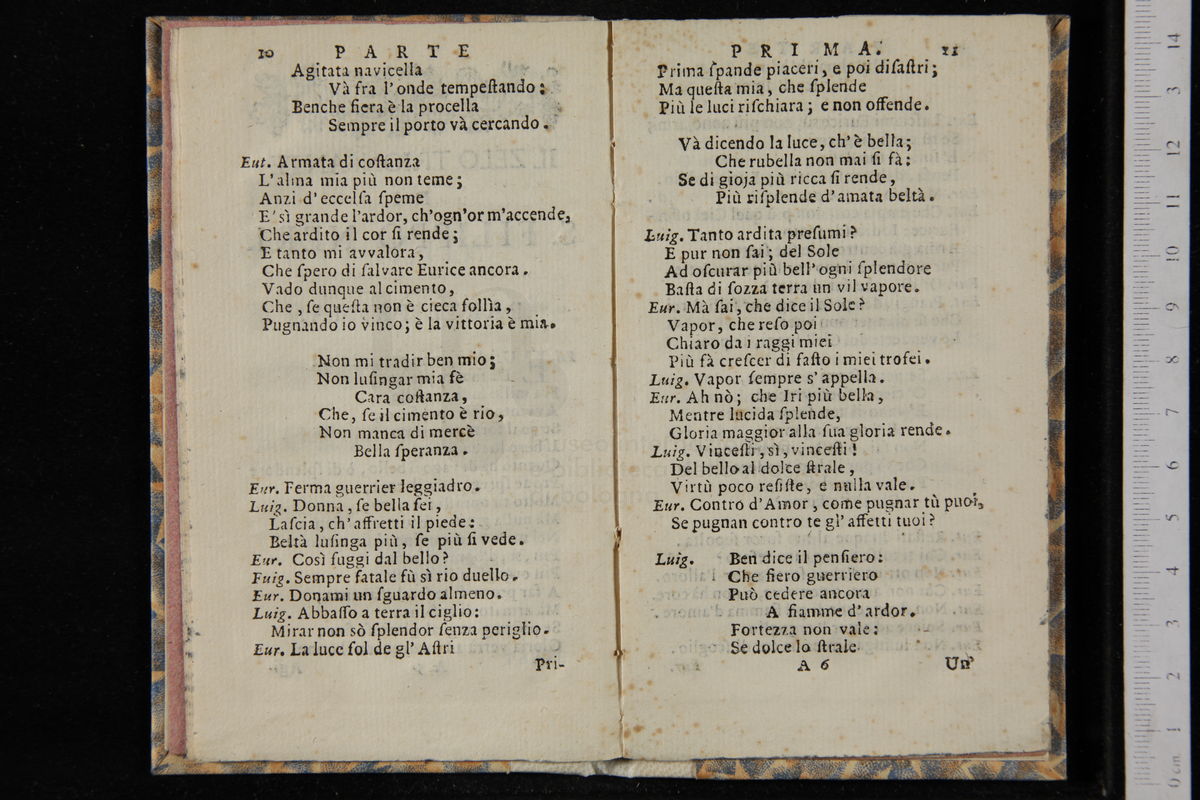 10 PARTE
Agitata navicella
Và fra l'onde tempeſtando:
Benche fiera è la procella
Sempre il porto và cercando.
Eut. Armata di coſtanza
L'alma mia più non teme;
Anzi d'eccelſa ſpeme
E' sì grande l'ardor, ch'ogn'or m'accende,
Che ardito il cor ſi rende;
E tanto mi avvalora,
Che ſpero di ſalvare Eurice ancora.
Vado dunque al cimento,
Che, ſe queſta non è cieca follìa,
Pugnando io vinco; è la vittoria è mia.
Non mi tradir ben mio;
Non luſingar mia fè
Cara coſtanza,
Che, ſe il cimento è rio,
Non manca di mercè
Bella ſperanza.
Eur. Ferma guerrier leggiadro.
Luig. Donna, ſe bella ſei,
Laſcia, ch'affretti il piede:
Beltà luſinga più, ſe più ſi vede.
Eur. Così fuggi dal bello?
Fuig. Sempre fatale fù sì rio duello.
Eur. Donami un ſguardo almeno.
Luig. Abbaſſo a terra il ciglio:
Mirar non sò ſplendor ſenza periglio.
Eur. La luce ſol de gl'Aſtri
Pri-
PRIMA. 11
Prima ſpande piaceri, e poi diſaſtri;
Ma queſta mia, che ſplende
Più le luci riſchiara; e non offende.
Và dicendo la luce, ch'è bella;
Che rubella non mai ſi fà:
Se di gioja più ricca ſi rende,
Più riſplende d'amata beltà.
Luig. Tanto ardita preſumi?
E pur non ſai; del Sole
Ad oſcurar più bell'ogni ſplendore
Baſta di ſozza terra un vil vapore.
Eur. Mà ſai, che dice il Sole?
Vapor, che reſo poi
Chiaro da i raggi miei
Più fà creſcer di faſto i miei trofei.
Luig. Vapor ſempre s'appella.
Eur. Ah nò; che Iri più bella,
Mentre lucida ſplende,
Gloria maggior alla ſua gloria rende.
Luig. Vinceſti, sì, vinceſti!
Del bello al dolce ſtrale,
Virtù poco reſiſte, e nulla vale.
Eur. Contro d'Amor, come pugnar tù puoi,
Se pugnan contro te gl'affetti tuoi?
Luig. Ben dice il penſiero:
Che fiero guerriero
Può cedere ancora
A fiamme d'ardor.
Fortezza non vale:
Se dolce lo ſtrale
A 6 Un'